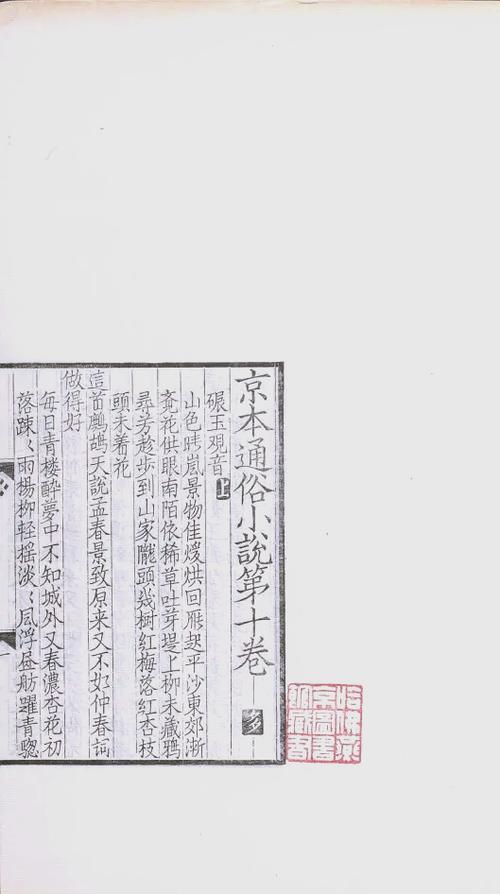 京本通俗小說第十卷
碾玉观音上
山色晴嵐景物佳煖烘回雁起平沙東郊漸
花供眼南陌依稀草吐芽堤上柳未藏鴉
尋芳趂步到山家隴頭幾樹紅梅落紅杏枝
頭未着花
這首鷓鴣天說孟春景致原来又不如仲春詞
做得好
每日青楼醉夢中不知城外又春濃杏花初
落踈〻雨楊柳轻摇淡〻風浮画舫躍青驄
哈佛燕
京圖書
館藏書